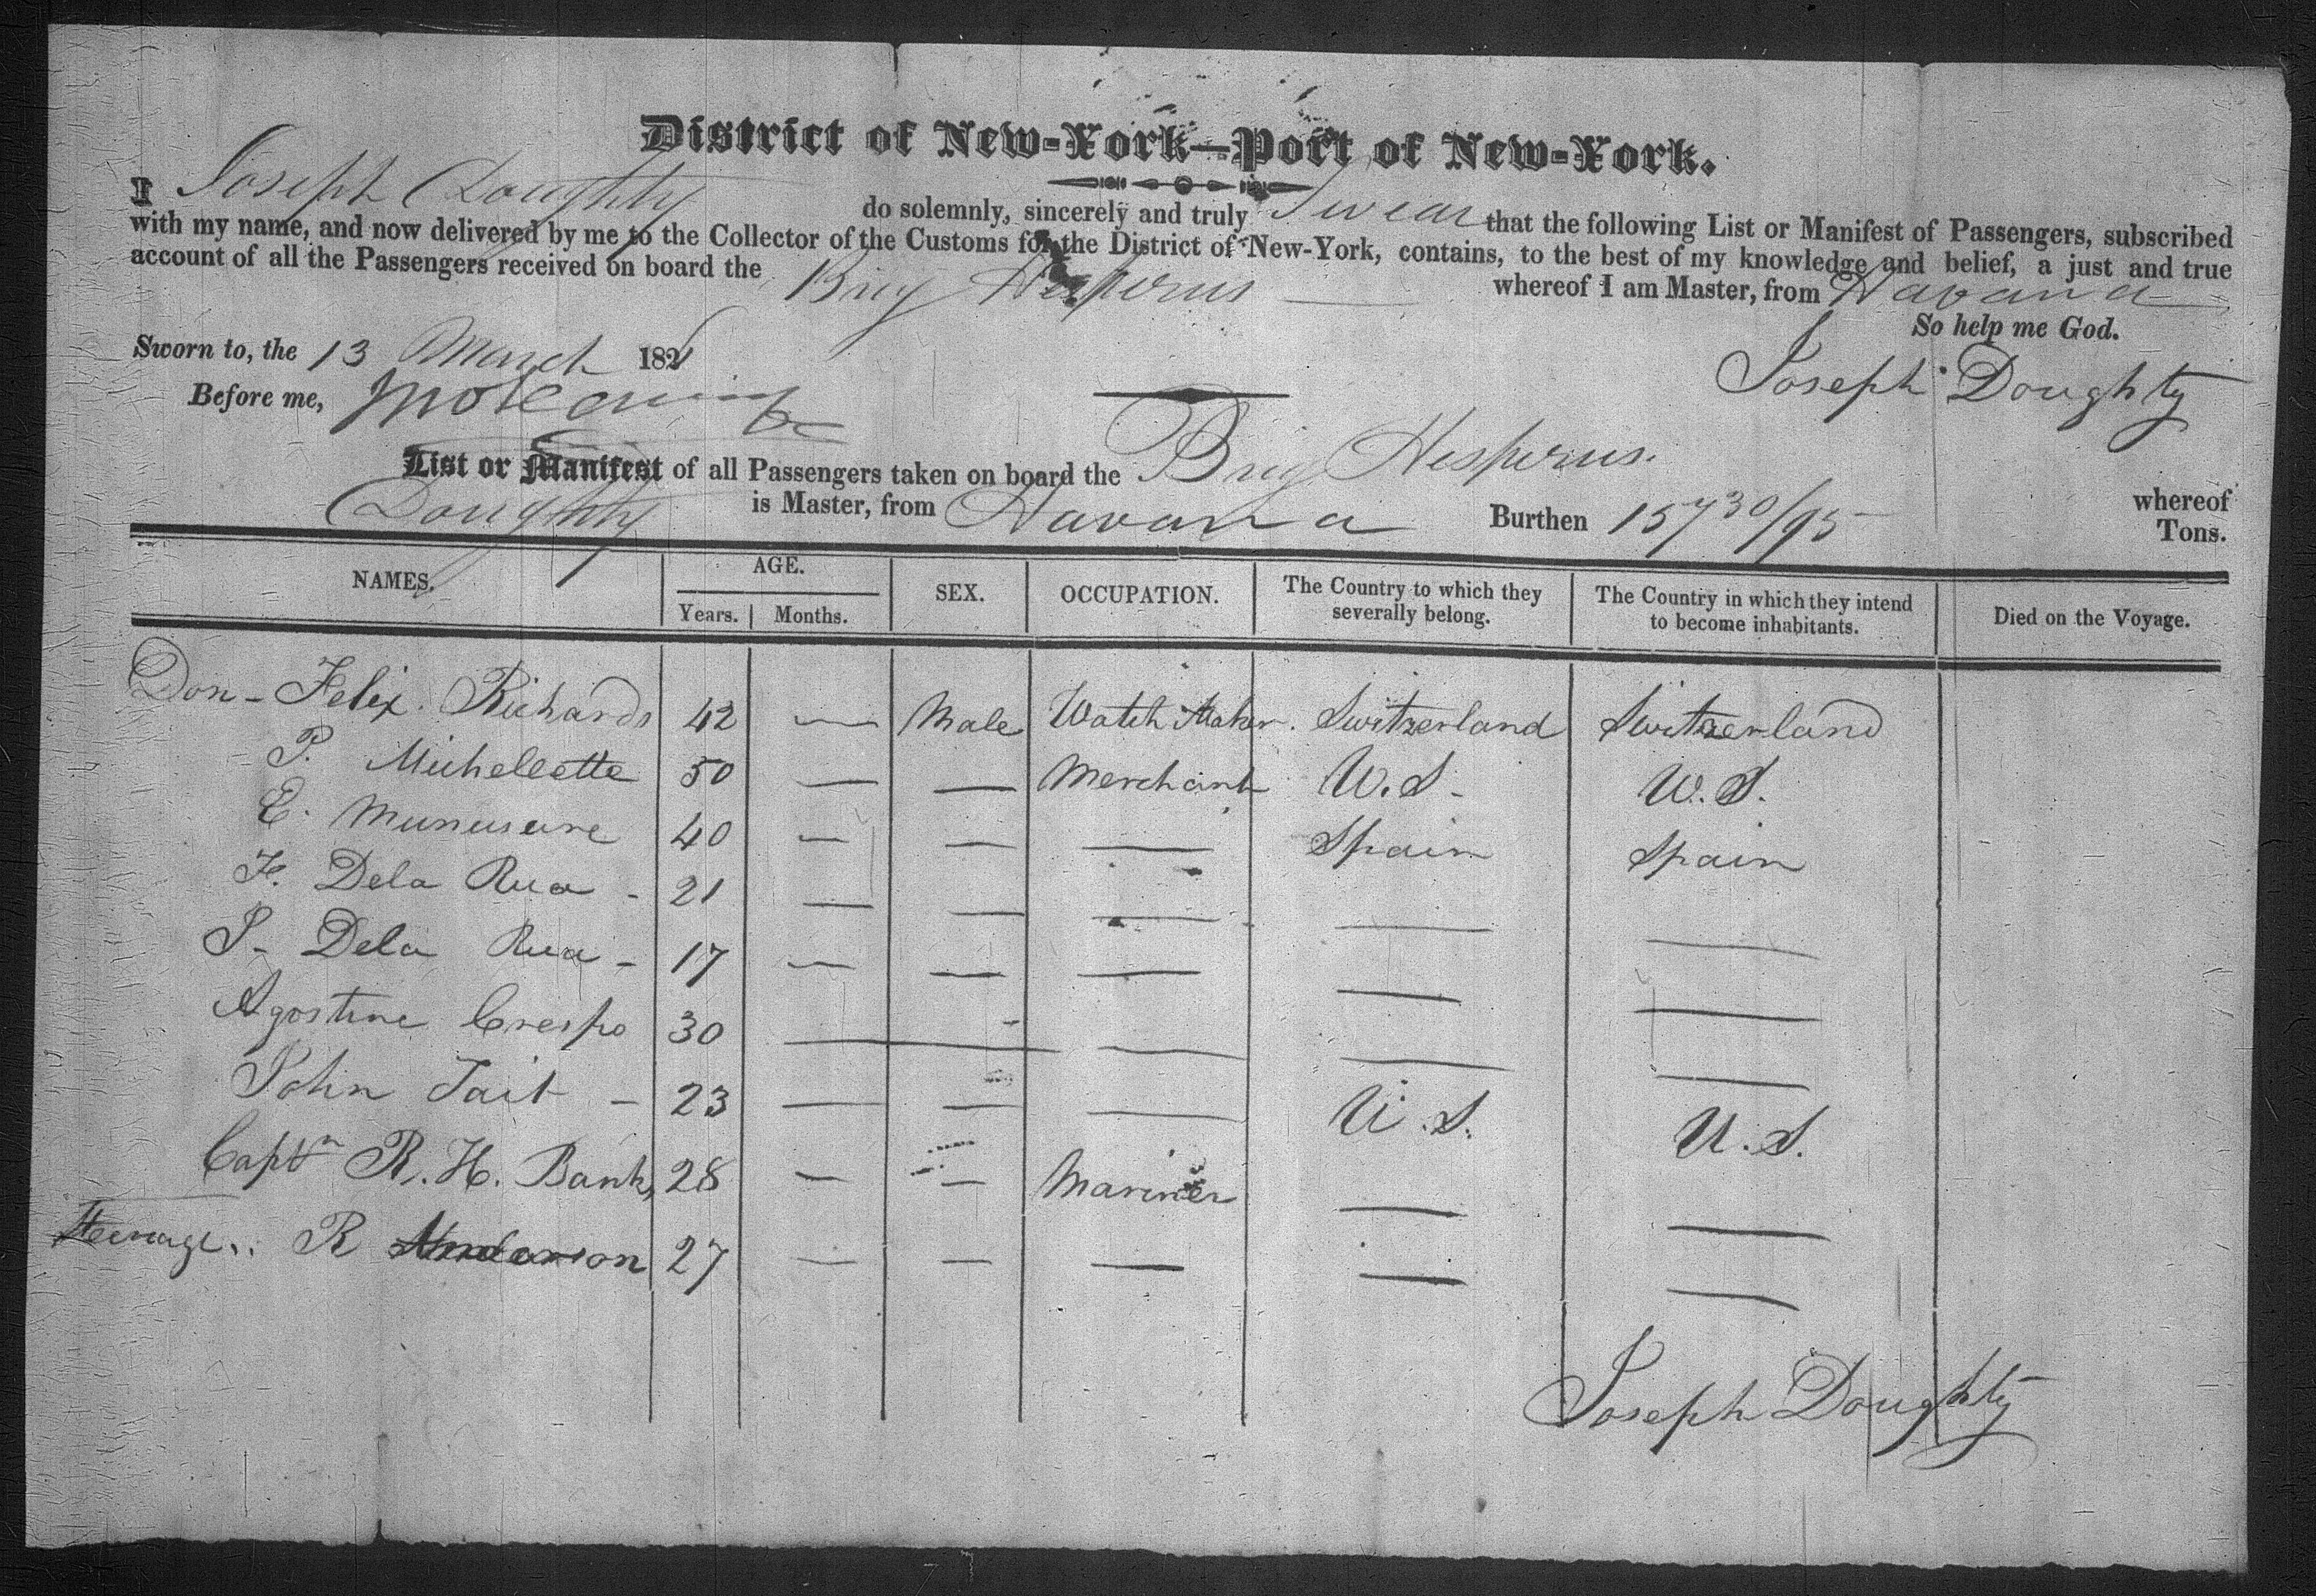 District of New-York—Port of New-York.
I Joseph Doughty do solemnly, sincerely and truly Swear that the following List or Manifest of Passengers, subscribed
with my name, and now delivered by me to the Collector of the Customs for the District of New-York, contains, to the best of my knowledge and belief, a just and true
account of all the Passengers received on board the Brig Hesperus whereof I am Master, from Havana
So help me God.
Sworn to, the 13 March 182
Joseph Doughty
Before me,
List or Manifest of all Passengers taken on board the Brig Hesperus. whereof
Doughty is Master, from Havana Burthen 157 30/95 Tons.
NAMES. AGE. SEX. OCCUPATION. The Country to which they severally belong. The Country in which they intend to become inhabitants. Died on the Voyage.
Years. Months.
Don - Felix Richards 42 — Male Watch Maker. Switzerland Switzerland
P. Micheleette 50 — — Merchant U.S. U.S.
E. 40 — — — Spain Spain
F. Dela Rua - 21 — — — — —
P. Dela Rua - 17 — — — — —
Agostine Crespo 30 — — — — —
John Tait - 23 — — — U.S. U.S.
Captn R. H. Banks 28 — — Mariner — —
Steerage.. R Anderson 27 — — — — —
Joseph Doughty